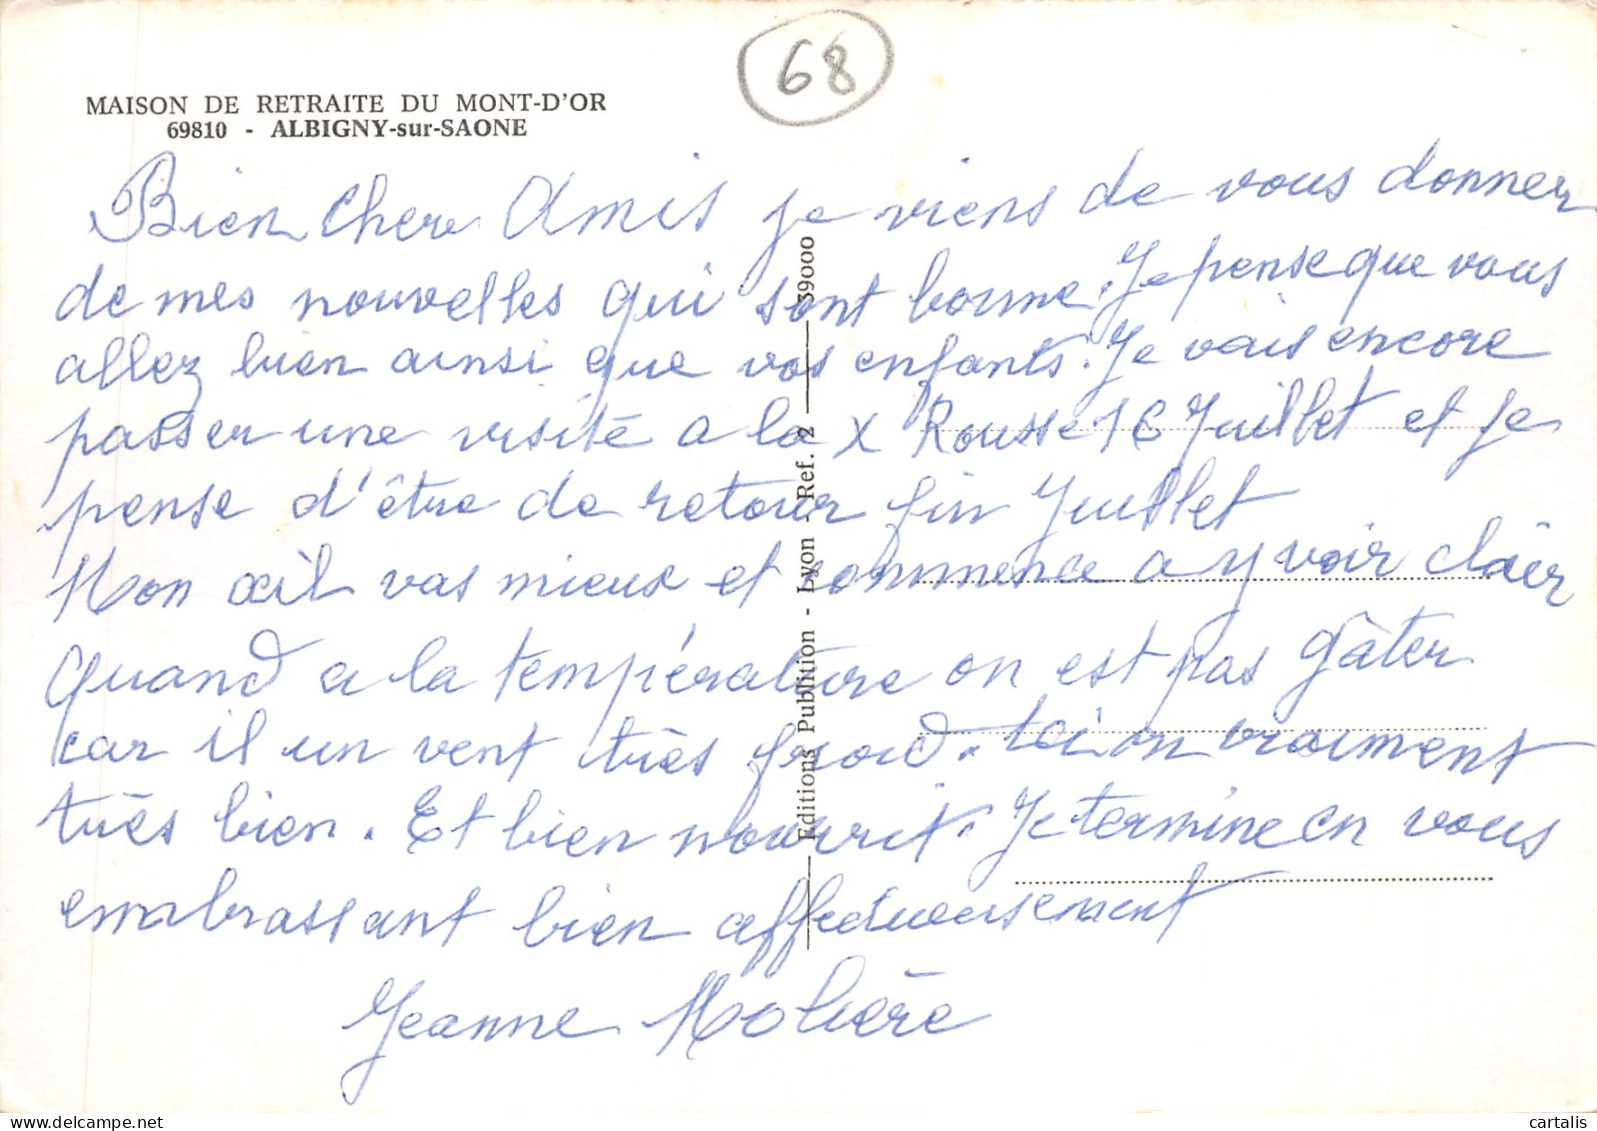 68
MAISON DE RETRAITE DU MONT-D'OR
69810 - ALBIGNY-sur-SAONE
Bien Cher Amis je viens de vous donner
de mes nouvelles qui sont bonne. Je pense que vous
allez bien ainsi que vos enfants. Je vais encore
passer une visite a la X Rousse 16 Juillet et je
pense d'être de retour fin Juillet
Mon œil vas mieux et commence a y voir clair
Quand a la température on est pas gâter
car il un vent très froid. Ici on vraiment
très bien. Et bien nourrit. Je termine en vous
embrassant bien affectueusement
Jeanne Molière
Editions Publition - Lyon - Ref. 2 39000
cartalis